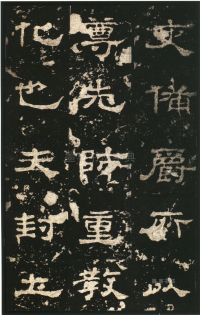 吏備爵所以
尊先師重教
化也夫封土